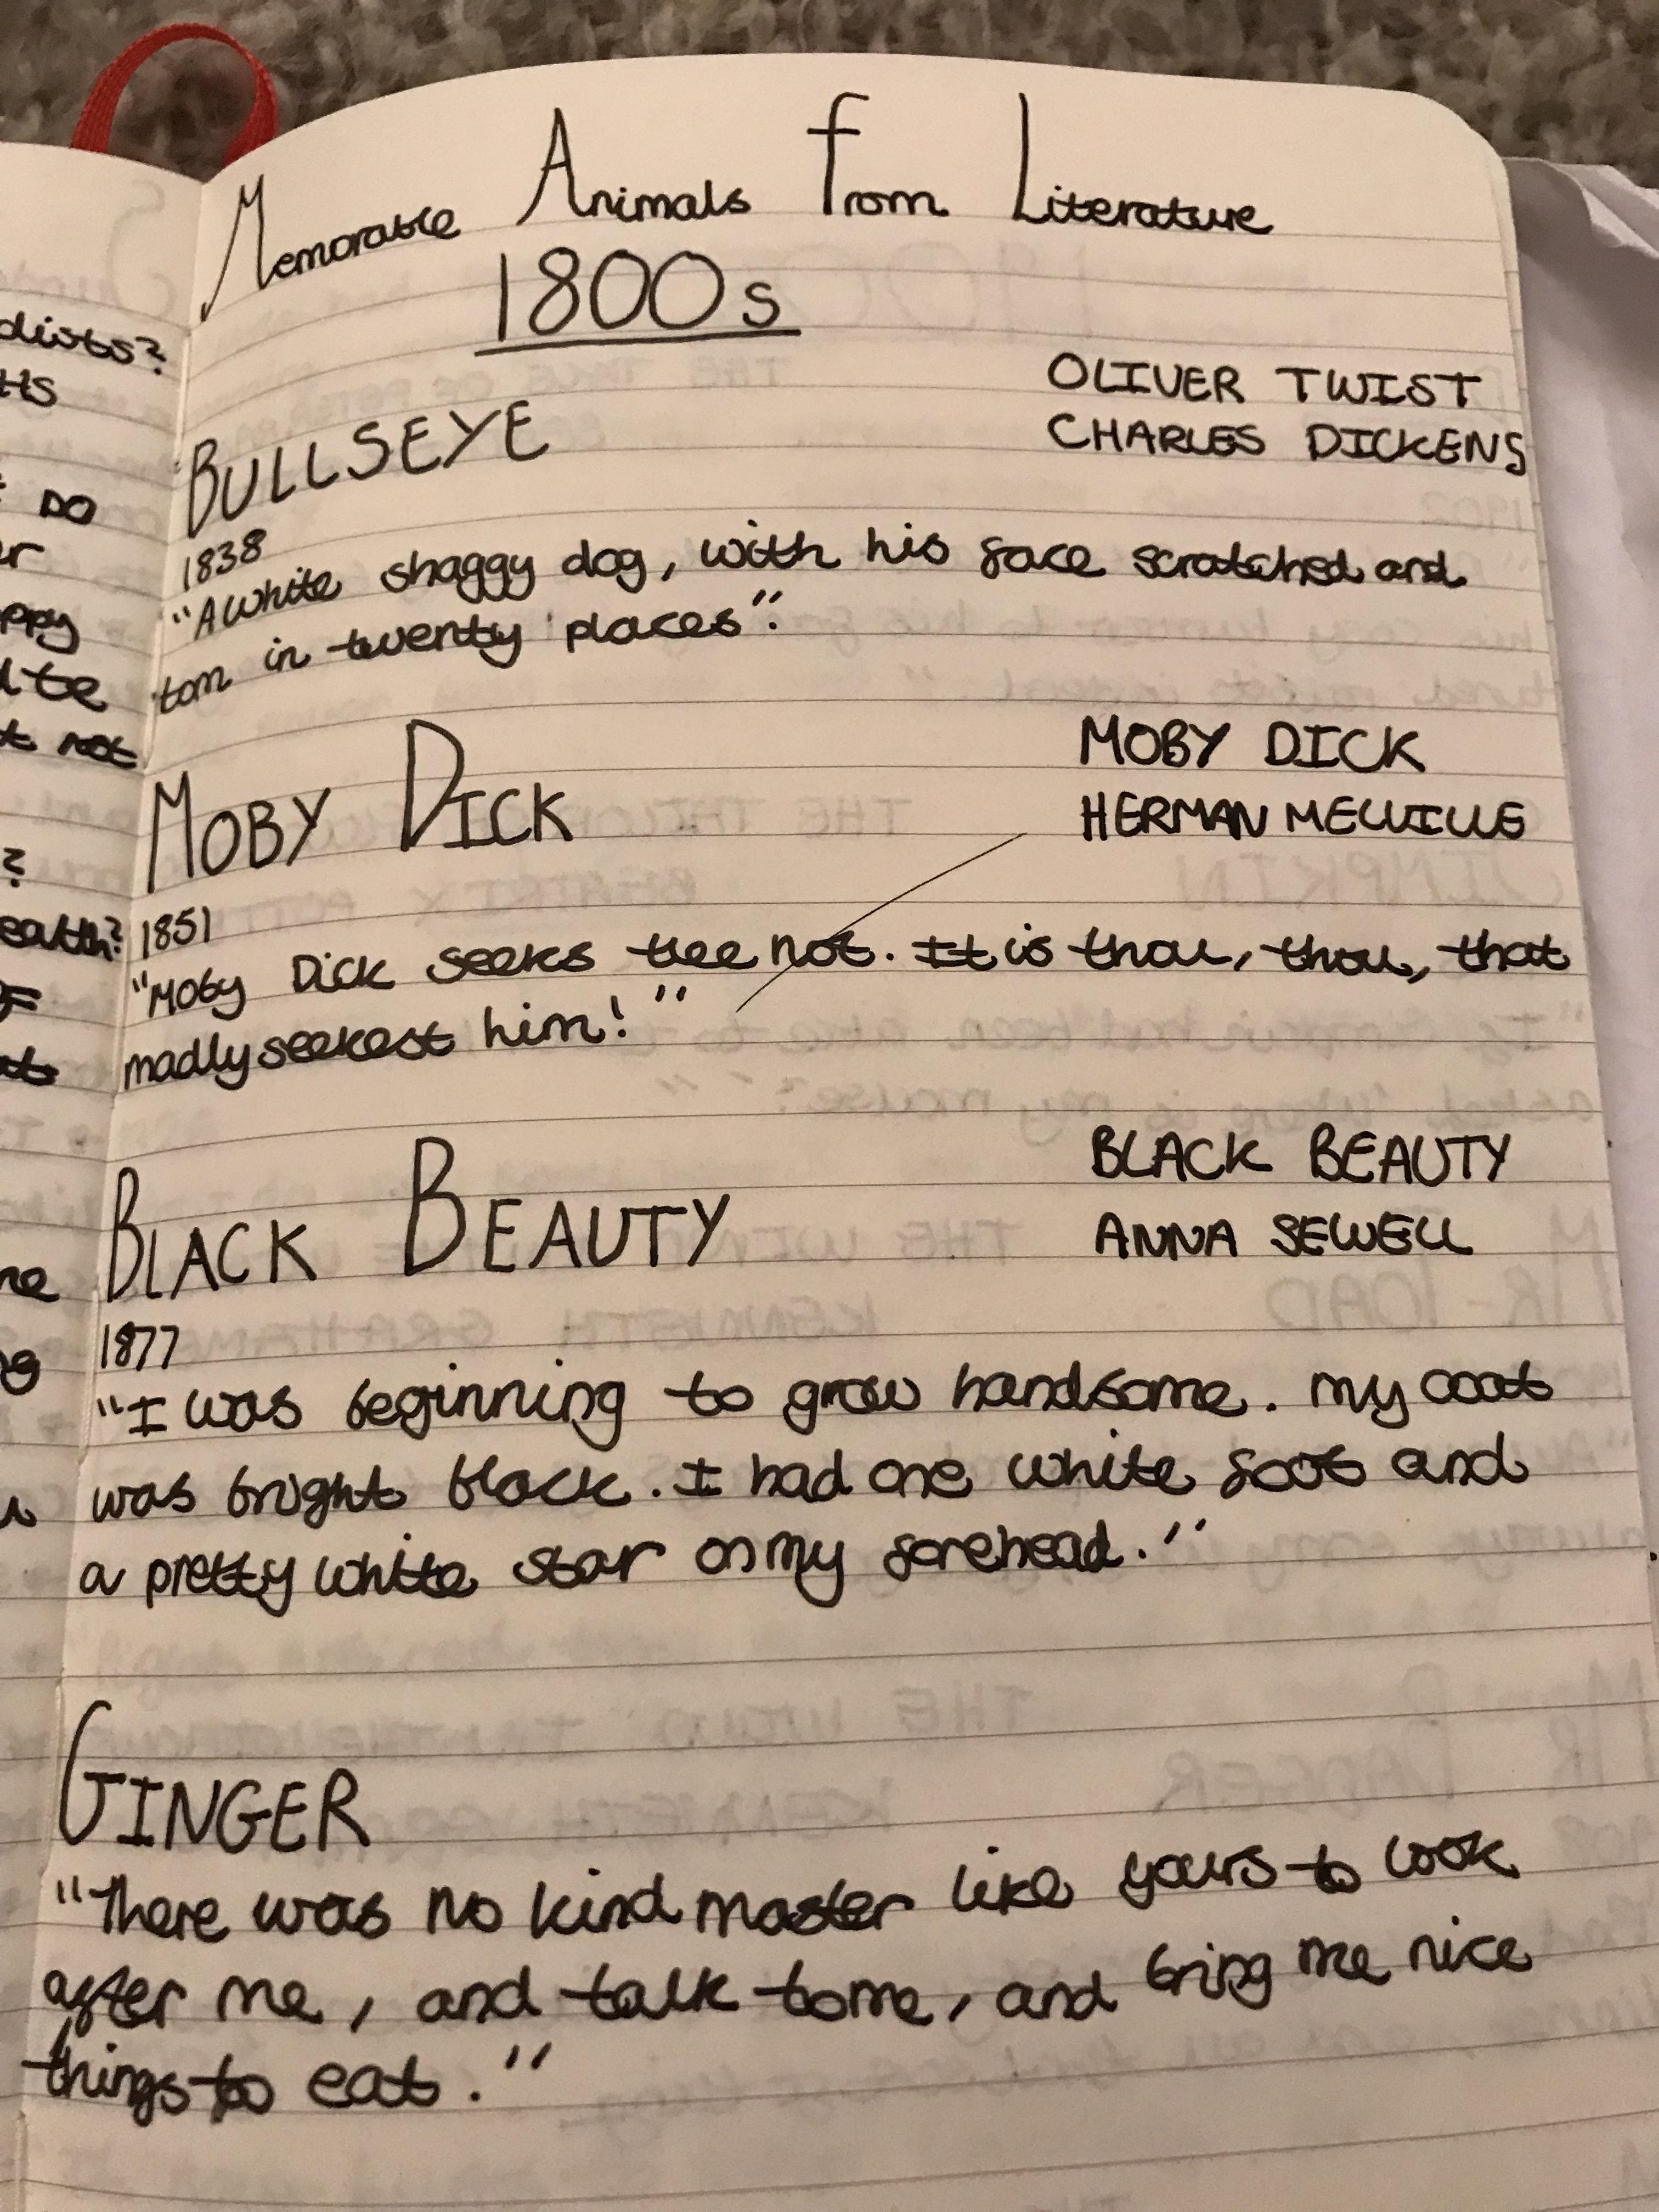 Memorable Animals from Literature
1800s
BULLSEYE
OLIVER TWIST
CHARLES DICKENS
1838
"A white shaggy dog, with his face scratched and
torn in twenty places".
MOBY DICK
MOBY DICK
HERMAN MELVILLE
1851
"Moby Dick seeks thee not. It is thou, thou, that
madly seekest him!"
BLACK BEAUTY
BLACK BEAUTY
ANNA SEWELL
1877
"I was beginning to grow handsome. my coat
was bright black. I had one white foot and
a pretty white star on my forehead."
GINGER
"There was no kind master like yours to look
after me, and talk to me, and bring me nice
things to eat."